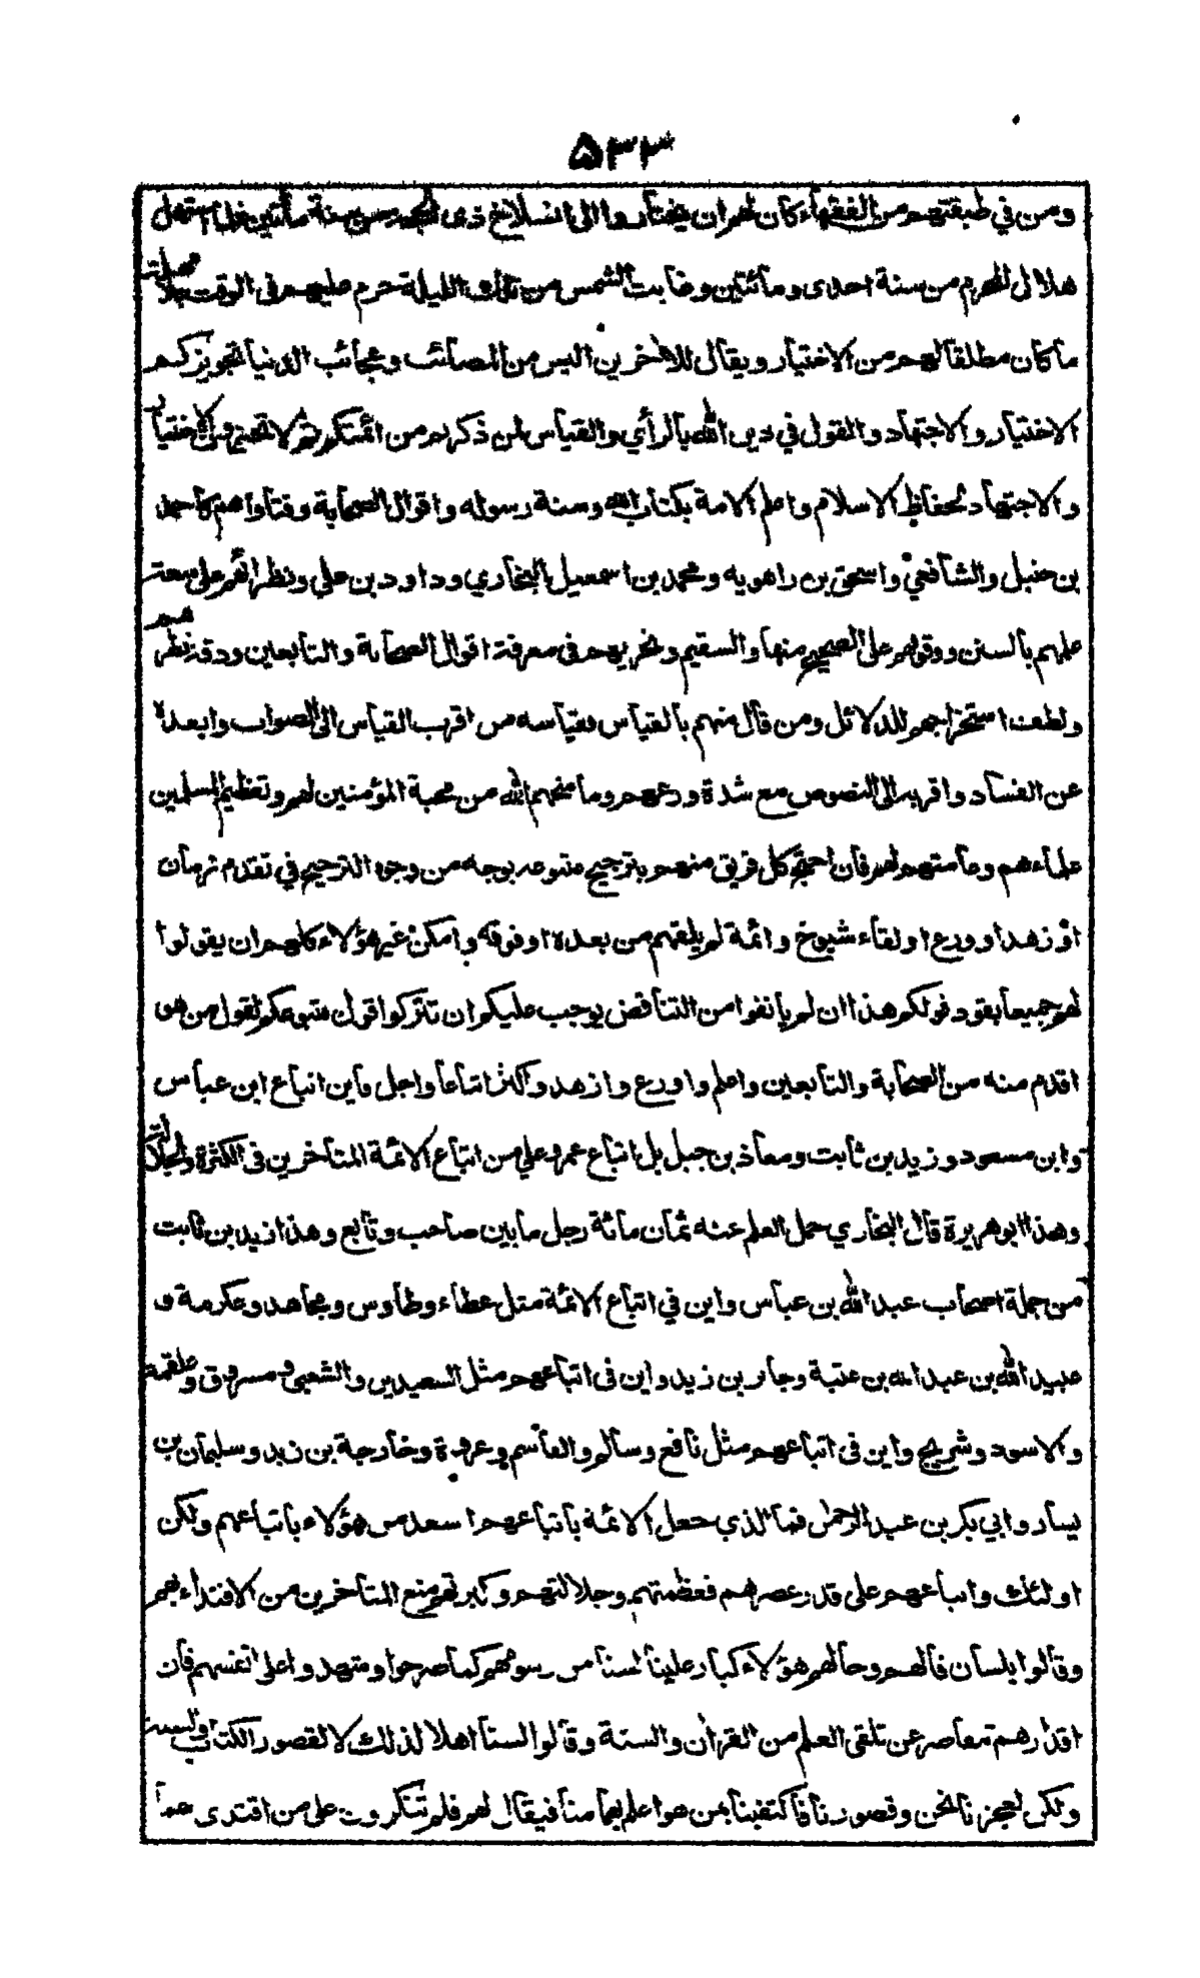 ۵۳۳
ومن في طبقتهم من الفقهاء كان لهم ان يختاروا الى انسلاخ ذى الحجة من سنة مأتين فلما استهل
هلال المحرم من سنة احدى ومائتين وغابت الشمس من تلك الليلة حرم عليهم فى الوقت بلا مهلة
ما كان مطلقا لهم من الاختيار ويقال للاخرين اليس من المصائب وعجائب الدنيا تجويزكم
الاختيار والاجتهاد والقول في دين الله بالرأي والقياس لمن ذكرتم من ائمتكم ثم لا تجيزون الاختيار
والاجتهاد لحفاظ الاسلام واعلم الامة بكتاب الله وسنة رسوله واقوال الصحابة وفتاواهم كاحمد
بن حنبل والشافعي واسحق بن راهويه ومحمد بن اسمعيل البخاري وداود بن علي ونظرائهم على سعة
علمهم بالسنن ووقوفهم على الصحيح منها والسقيم وتحريهم فى معرفة اقوال الصحابة والتابعين ودقة نظرهم
ولطف استخراجهم للدلائل ومن قال منهم بالقياس فقياسه من اقرب القياس الى الصواب وابعده
عن الفساد واقربه الى النصوص مع شدة ورعهم وما منحهم الله من محبة المؤمنين لهم وتعظيم المسلمين
علماءهم وعامتهم لهم فان احتج كل فريق منهم بترجيح متبوعه بوجه من وجوه الترجيح في تقدم زمان
او زهد او ورع او لقاء شيوخ وائمة لم يلقهم من بعده او فوقه وامكن غير هؤلاء كلهم ان يقولوا
لهم جميعا بقود قولكم هذا ان لم يانفوا من التناقض يوجب عليكم ان تتركوا قول متبوعكم لقول من هو
اقدم منه من الصحابة والتابعين واعلم واورع وازهد واكثر اتباعا واجل فاين اتباع ابن عباس
وابن مسعود وزيد بن ثابت ومعاذ بن جبل بل اتباع عمر وعلي من اتباع الائمة المتأخرين فى الكثرة والجلالة
وهذا ابو هريرة قال البخاري حمل العلم عنه ثمان مائة رجل مابين صاحب وتابع وهذا زيد بن ثابت
من جملة اصحاب عبد الله بن عباس واين في اتباع الائمة مثل عطاء وطاوس ومجاهد وعكرمة و
عبيد الله بن عبد الله بن عتبة وجابر بن زيد واين فى اتباعهم مثل السعيدين والشعبي ومسروق وعلقمة
والاسود وشريح واين فى اتباعهم مثل نافع وسالم والقاسم وعروة وخارجة بن زيد وسليمان بن
يسار وابي بكر بن عبد الرحمن فما الذي جعل الائمة باتباعهم اسعد من هؤلاء باتباعهم ولكن
اولئك واتباعهم على قدر عصرهم فعظمتهم وجلالتهم وكبرتهم منع المتأخرين من الاقتداء بهم
وقالوا بلسان قالهم وحالهم هؤلاء كبار علينا لسنا من رسومهم كما صرحوا وشهدوا على انفسهم فان
اقدارهم تتقاصر عن تلقى العلم من القران والسنة وقالوا لسنا اهلا لذلك لا لقصور الكتاب والسنة
ولكن لعجزنا نحن وقصورنا فاكتفينا بمن هو اعلم بهما منا فيقال لهم فلم تنكرون على من اقتدى بهما